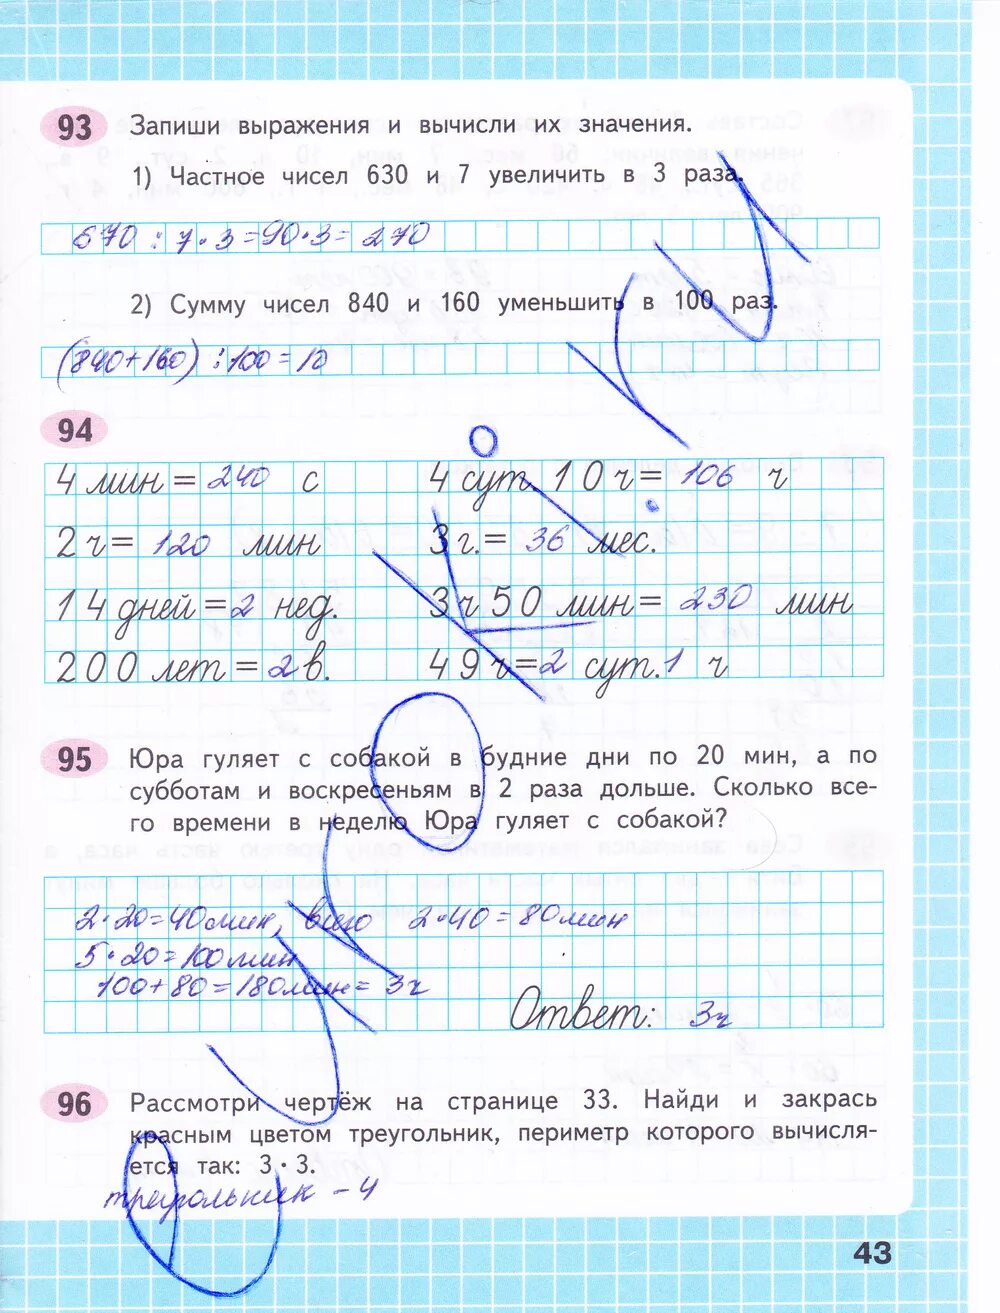 93 Запиши выражения и вычисли их значения.
1) Частное чисел 630 и 7 увеличить в 3 раза.
670 : 7 · 3 = 90 · 3 = 270
2) Сумму чисел 840 и 160 уменьшить в 100 раз.
(840+160) : 100 = 10
94
4 мин = 240 с 4 сут. 10 ч = 106 ч
2 ч = 120 мин 3 г. = 36 мес.
14 дней = 2 нед. 3 ч 50 мин = 230 мин
200 лет = 2 в. 49 ч = 2 сут. 1 ч
95 Юра гуляет с собакой в будние дни по 20 мин, а по
субботам и воскресеньям в 2 раза дольше. Сколько все-
го времени в неделю Юра гуляет с собакой?
2 · 20 = 40 мин, всего 2 · 40 = 80 мин
5 · 20 = 100 мин
100 + 80 = 180 мин = 3ч
Ответ: 3ч
96 Рассмотри чертёж на странице 33. Найди и закрась
красным цветом треугольник, периметр которого вычисля-
ется так: 3 · 3.
треугольник - 4
43